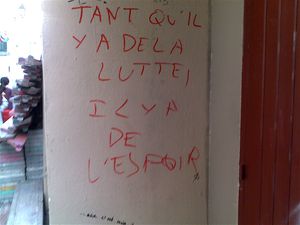 TANT QU'IL
Y A DE LA
LUTTE,
IL Y A
DE
L'ESPOIR